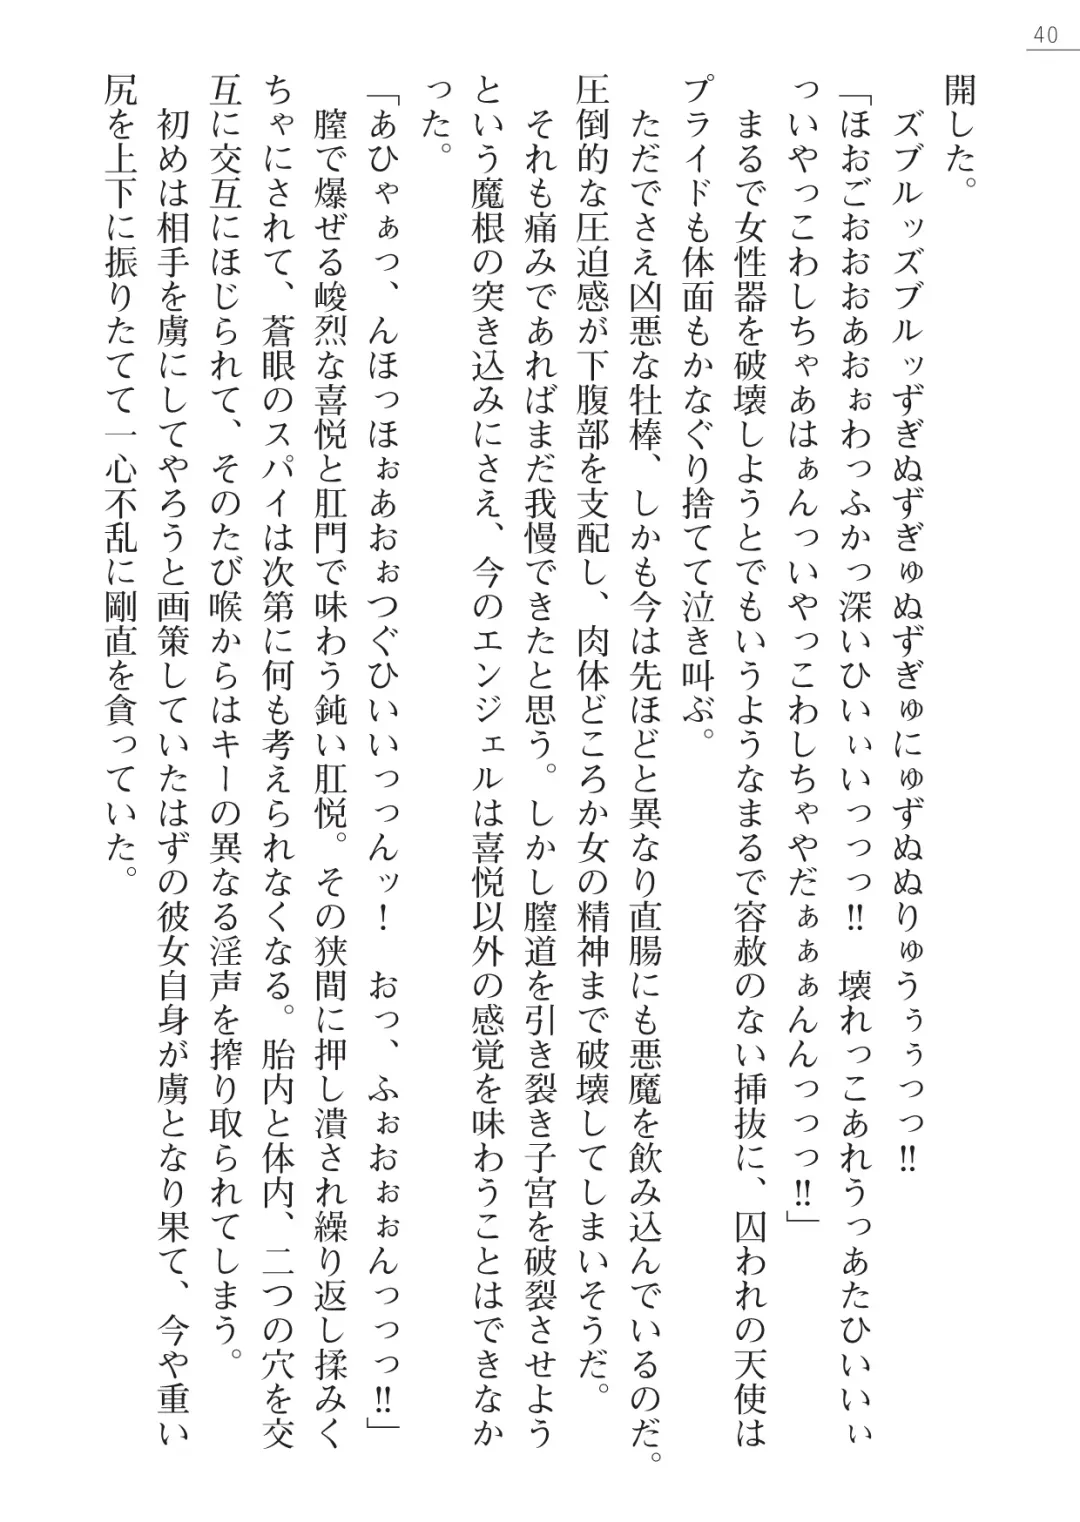 40
開した。
　ズブルッズブルッずぎぬずぎゅぬずぎゅにゅずぬぬりゅうぅぅっっ!!
「ほおごおおおあおぉわっふかっ深いひいぃいっっっ!!　壊れっこあれうっあたひいいぃ
っいやっこわしちゃあはぁんっいやっこわしちゃやだぁぁぁんんっっっ!!」
　まるで女性器を破壊しようとでもいうようなまるで容赦のない挿抜に、囚われの天使は
プライドも体面もかなぐり捨てて泣き叫ぶ。
　ただでさえ凶悪な牡棒、しかも今は先ほどと異なり直腸にも悪魔を飲み込んでいるのだ。
圧倒的な圧迫感が下腹部を支配し、肉体どころか女の精神まで破壊してしまいそうだ。
　それも痛みであればまだ我慢できたと思う。しかし膣道を引き裂き子宮を破裂させよう
という魔根の突き込みにさえ、今のエンジェルは喜悦以外の感覚を味わうことはできなか
った。
「あひゃぁっ、んほっほぉあおぉつぐひいいっっんッ！　おっ、ふぉおぉぉんっっっ!!」
　膣で爆ぜる峻烈な喜悦と肛門で味わう鈍い肛悦。その狭間に押し潰され繰り返し揉みく
ちゃにされて、蒼眼のスパイは次第に何も考えられなくなる。胎内と体内、二つの穴を交
互に交互にほじられて、そのたび喉からはキーの異なる淫声を搾り取られてしまう。
　初めは相手を虜にしてやろうと画策していたはずの彼女自身が虜となり果て、今や重い
尻を上下に振りたてて一心不乱に剛直を貪っていた。